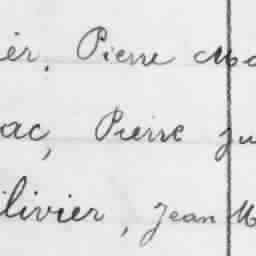 ier, Pierre Ma
ac, Pierre Ju
ilivier, Jean M